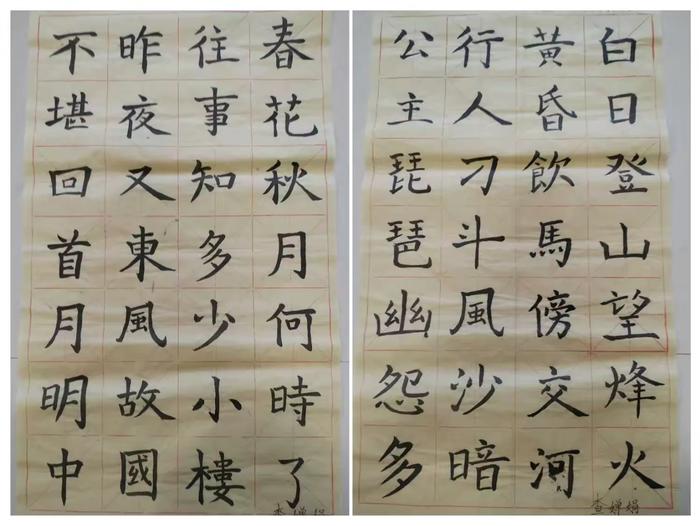 春花秋月何時了
往事知多少小樓
昨夜又東風故國
不堪回首月明中
查嬋娟
白日登山望烽火
黃昏飲馬傍交河
行人刁斗風沙暗
公主琵琶幽怨多
查嬋娟